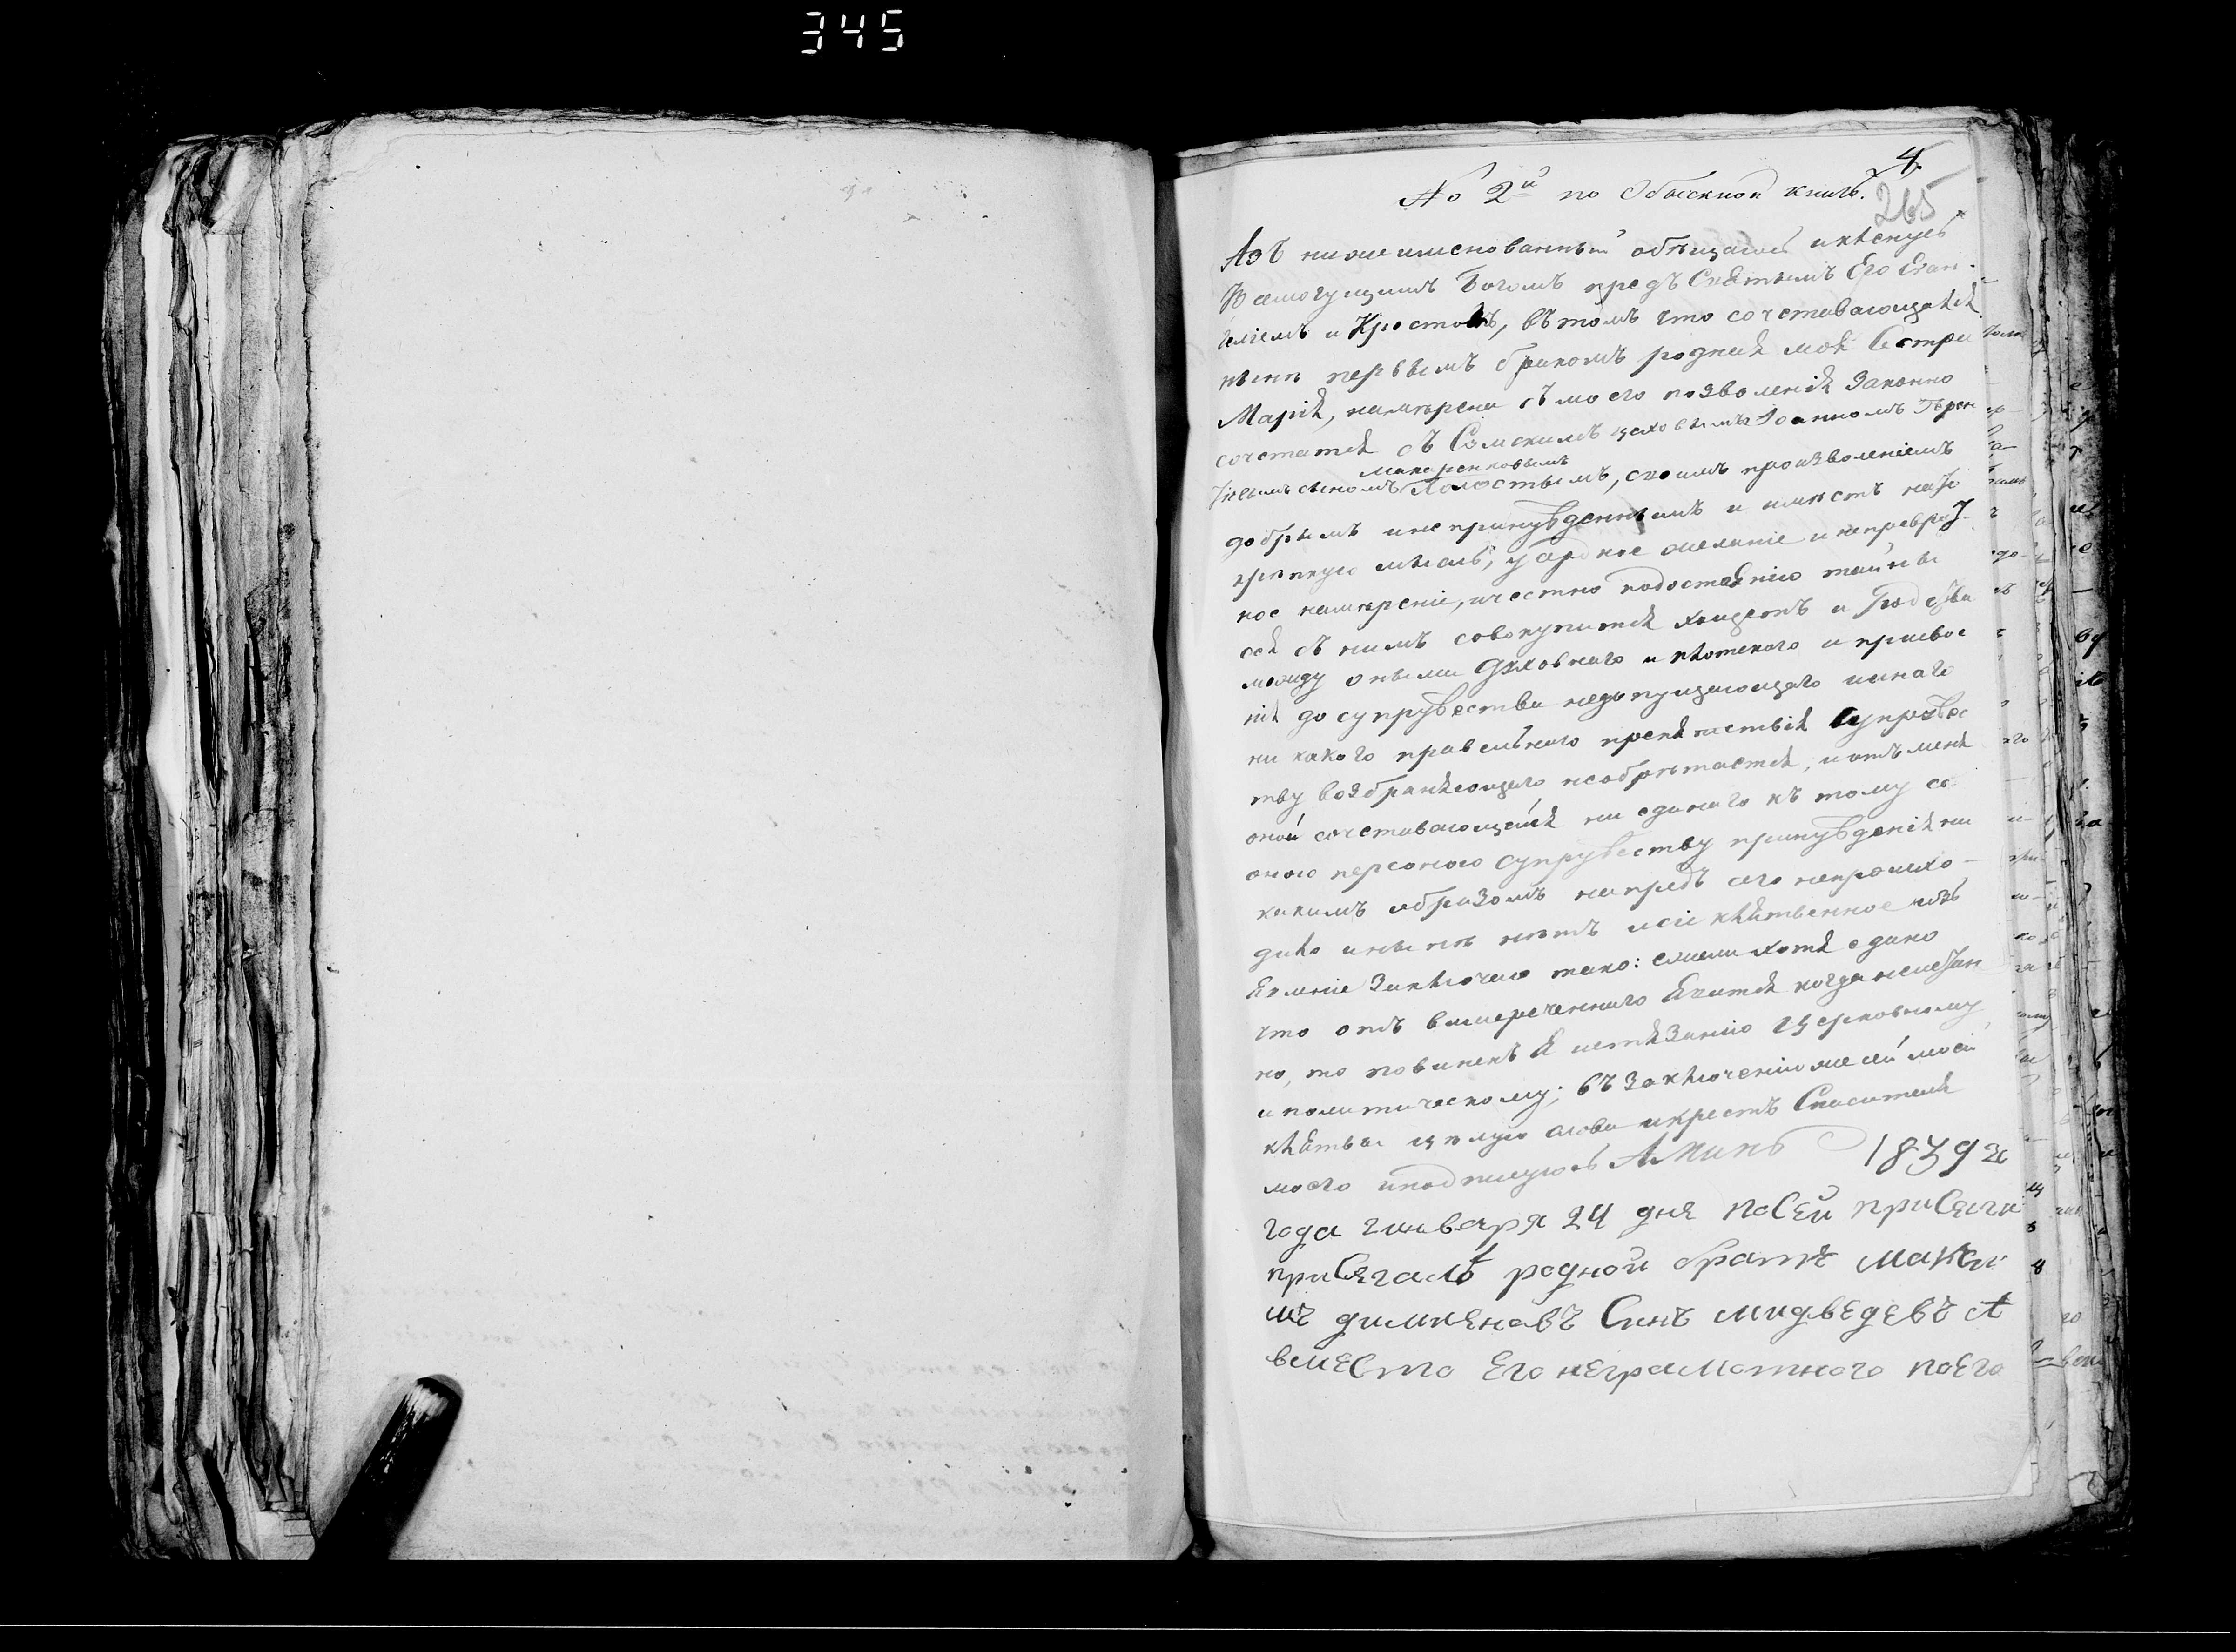 345
4.
№ 2й по Обыскной книгѣ.
265
Азъ нижеименованный обѣщаюсь и клянусь
Всемогущимъ Богомъ предъ Святымъ Его Еван-
геліемъ и Крестомъ, въ томъ что сочетавающаяся
нынѣ первымъ бракомъ родная моя Сестра
Марія, намѣрена съ моего позволенія Законно
сочетатся съ Сумскимъ цеховымъ Іоанномъ
сыномъ Холостымъ, своимъ произволеніемъ
Макаренковымъ
добрымъ и непринужденнымъ и имѣетъ на то
крѣпкую мысль, усердное желаніе и непревраt-
ное намѣреніе, и честно по достоянію тайны
сея съ нимъ совокупится хощетъ и Родства
между оными Духовнаго и плотскаго и присвое
нія до супружества недопущающаго и инаго
ни какого правельнаго препятствія Супружес
тву возбраняющаго необрѣтается, и отъ меня
оной сочетавающейся ни единаго къ тому со
оною персоною супружеству принужденія ни
какимъ образомъ напредъ сего непроисхо-
дило и нынѣ нѣтъ и сіе клятвенное изъ
явленіе Заключаю тако: если хотя едино
что отъ вышереченнаго явится когда неисtин
но, то повиненъ я истязанію Церковному
и политическому; въ Заключеніи же сей моей
клятвы цѣлую слова и крестъ Спасителя
моего и подпишусь Аминь 1839го
года генваря 24 дня поСей приСяги
приСягалъ родной братъ макси
мъ Синъ мидведевъ А
вместо Его неграмотного поЕго